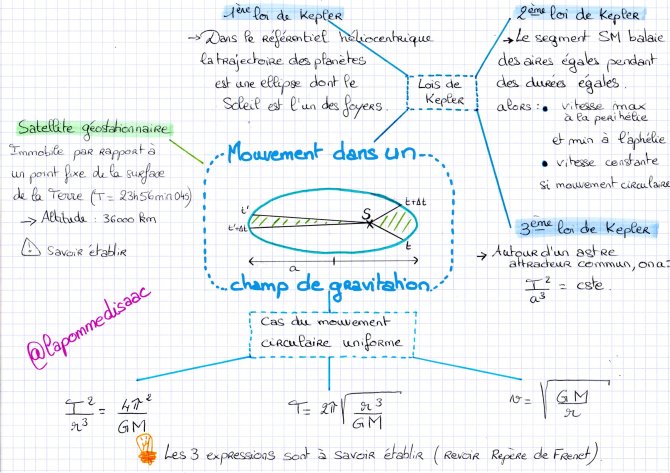 1ère loi de Kepler
→ Dans le référentiel héliocentrique
la trajectoire des planètes
est une ellipse dont le
Soleil est l'un des foyers.
2ème loi de Kepler
→ Le segment SM balaie
des aires égales pendant
des durées égales.
alors : • vitesse max
à la perihélie
et min à l'aphélie
• vitesse constante
si mouvement circulaire
Lois de
Kepler
Satellite géostationnaire
Immobile par rapport à
un point fixe de la surface
de la Terre (T = 23h56min04s)
→ Altitude : 36000 km
! Savoir établir
Mouvement dans un
t'
t'+Δt
S
t+Δt
t
a
champ de gravitation
3ème loi de Kepler
→ Autour d'un astre
attracteur commun, on a :
T²/a³ = cste.
@lapommedisaac
Cas du mouvement
circulaire uniforme
T²/r³ = 4π²/GM
T = 2π√(r³/GM)
v = √(GM/r)
Les 3 expressions sont à savoir établir (Revoir Repère de Frenet).